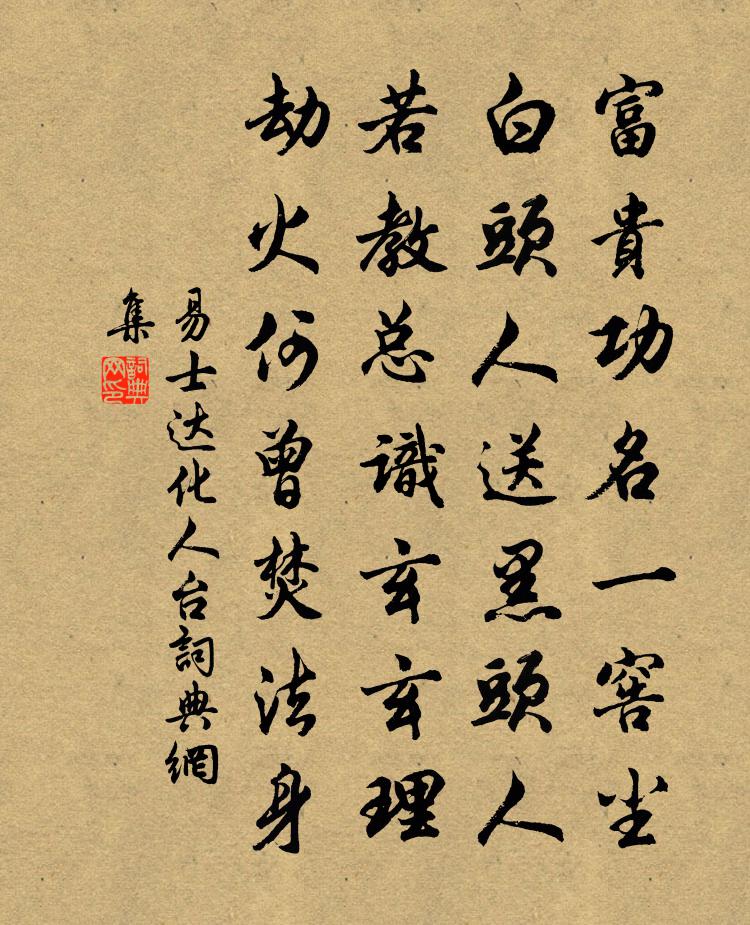 富貴功名一窖尘
白頭人送黑頭人
若教总識玄玄理
劫火何曾焚法身
易士达化人台詞典網
集
詞典网印